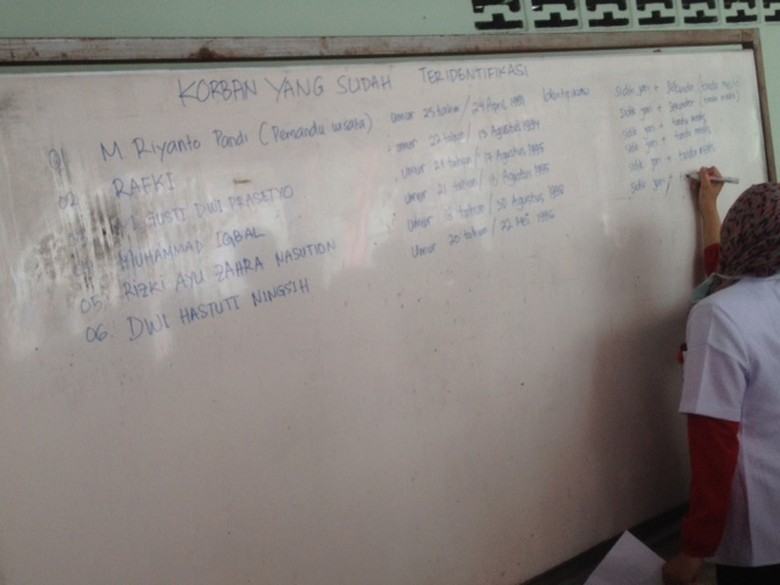 KORBAN YANG SUDAH TERIDENTIFIKASI
01 M Riyanto Pandi (Pemandu wisata) Umur 25 tahun / 24 April 1991 Identifikasi Sidik jari + Sekunder (tanda medis)
02. RAFKI umur 22 tahun / 13 Agustus 1994 Sidik jari + Sekunder (tanda medis)
GUSTI DWI PRASETYO Umur 21 tahun / 17 Agustus 1995 Sidik jari + tanda medis
MUHAMMAD IQBAL Umur 21 tahun / Agustus 1995 Sidik jari + tanda medis
05. RIZKI AYU ZAHRA NASUTION Umur tahun / 30 Agustus Sidik jari + tanda medis
06. DWI HASTUTI NINGSIH Umur 20 tahun / 22 Mei 1996 Sidik jari